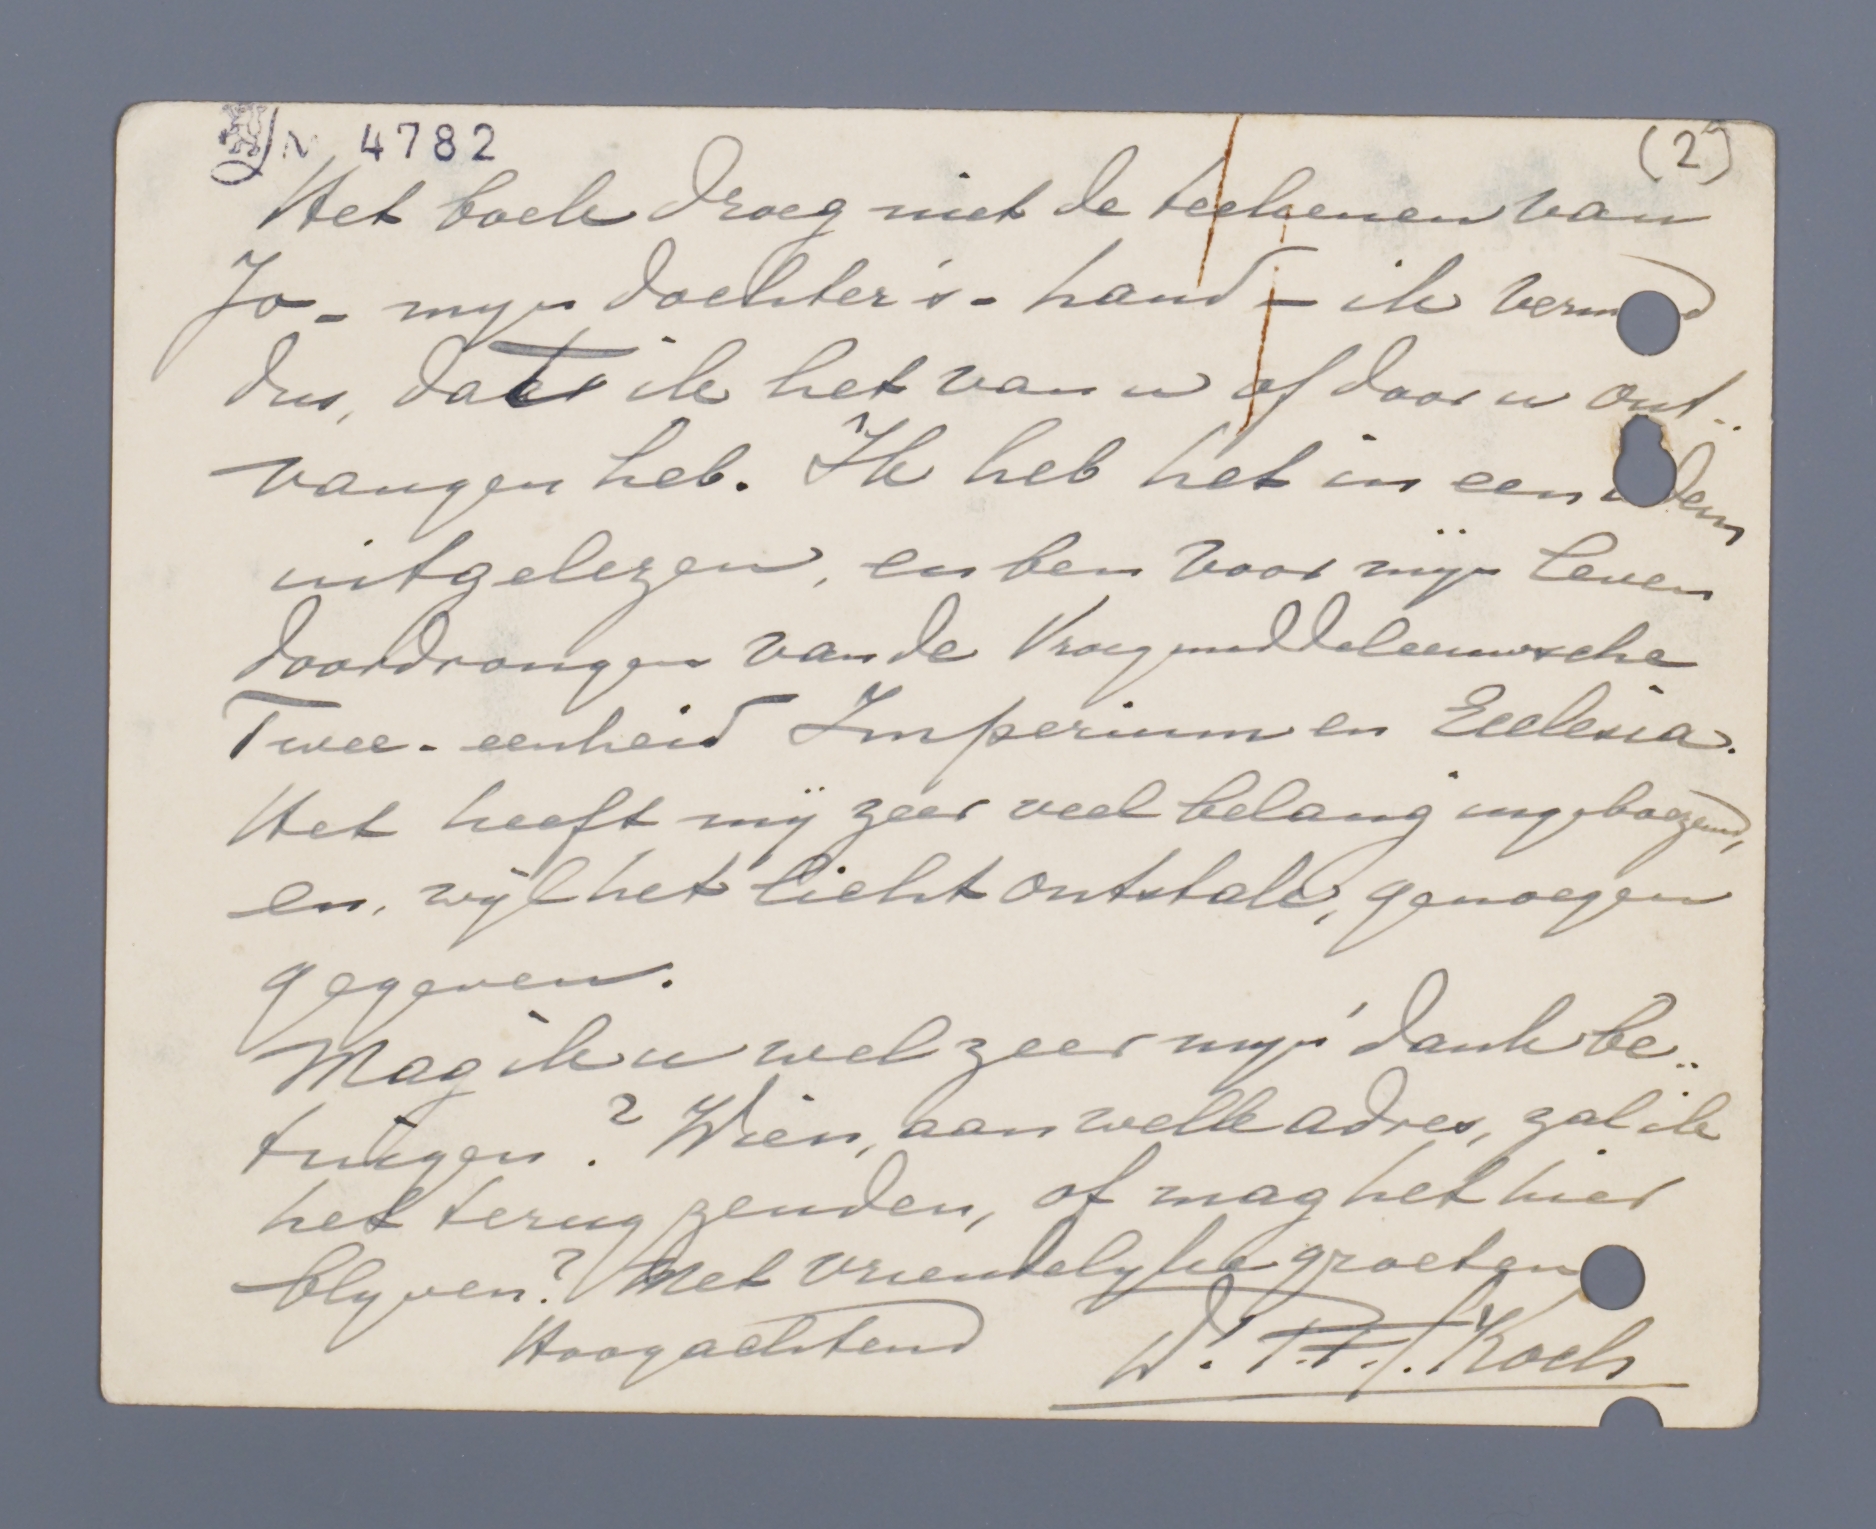 N 4782
(2)
Het boek droeg niet de teekenen van
Jo - myn dochter's - hand - ik
dus, dat ik het van u of door u ont-
vangen heb. Ik heb het in een adem
uitgelezen, en ben voor mijn leven
doordrongen van de Vroegmiddeleeuwsche
Twee-eenheid Imperium en Ecclesia.
Het heeft mij zeer veel belang ingeboezemd,
en, wijl het licht ontstak, genoegen
gegeven.
Mag ik u wel zeer myn dank be-
tuigen? Wien, aan welk adres, zal ik
het terug zenden, of mag het hier
blyven? Met vriendelyke groeten
Hoogachtend Koch